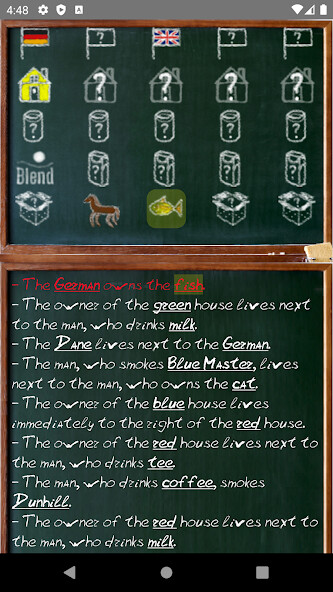 4:48
A
? ? ?
? ? ? ?
? ? ? ? ?
Blend ? ? ? ?
? ? ?
- The German owns the fish.
- The owner of the green house lives next
to the man, who drinks milk.
- The Dane lives next to the German.
- The man, who smokes Blue Master, lives
next to the man, who owns the cat.
- The owner of the blue house lives
immediately to the right of the red house.
- The owner of the red house lives next to
the man, who drinks tee.
- The man, who drinks coffee, smokes
Dunhill.
- The owner of the red house lives next to
the man, who drinks milk.